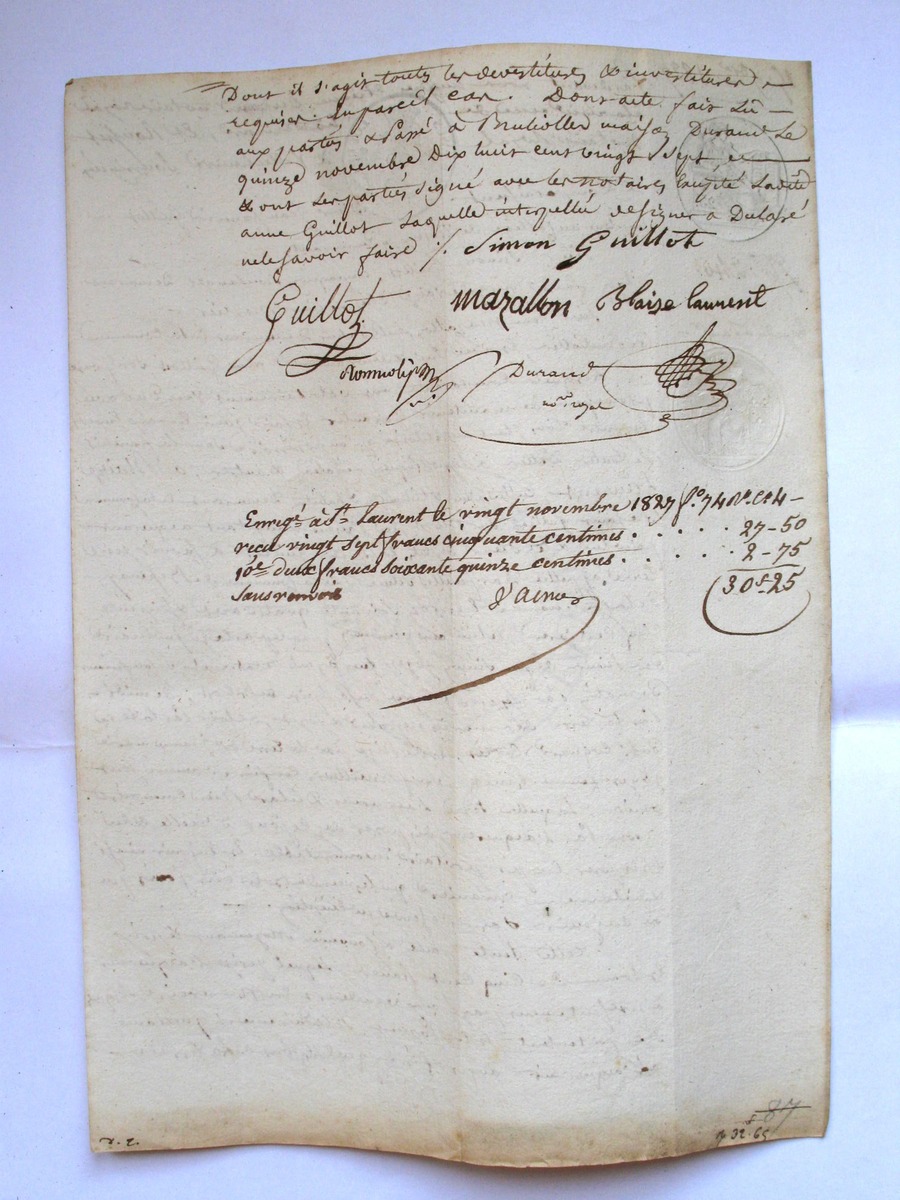 Dont il s'agit toutes les devestitures & investitures
requises en pareil cas. Dont acte fait Lû
aux partés & Passé à Bruliolles maison Durand Le
quinze novembre Dix huit cent vingt Sept
& ont Les partiés Signé avec les notaires Excepté Ladite
anne Guillot Laquelle interpellée de Signer a Déclaré
ne le Savoir faire /. Simon Guillot
Guillot mazallon Blaise laurent
Durand
no.re royal
Enreg.é à S.t Laurent le vingt novembre 1827 f.o 74 V.o C.es 4
reçu vingt Sept francs cinquante centimes . . . . . 27-50
10.e deux francs Soixante quinze centimes . . . . . 2-75
Sans renvoi 30f-25
87
32.65